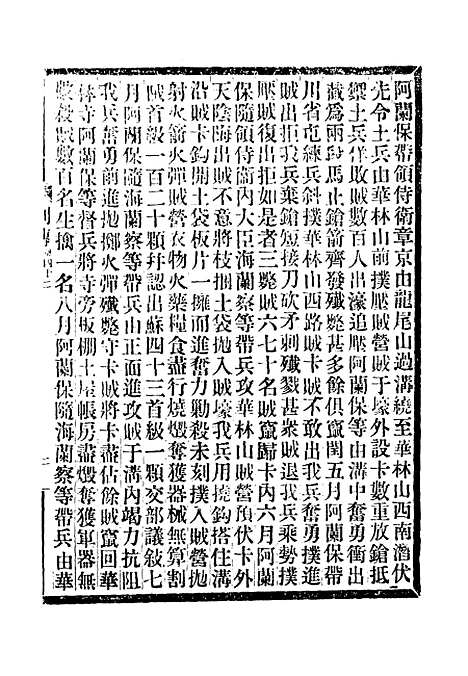 阿蘭保帶領侍衛章京由龍尾山過溝繞至華林山西南潛伏
先令土兵由華林山前撲壓賊營賊于壕外設卡數重放鎗抵
禦土兵佯敗賊數百人出濠追壓阿蘭保等由溝中奮勇衝出
賊為兩段馬上鎗箭齊發殲斃甚多餘俱竄閏五月阿蘭保帶
川省屯練兵斜撲華林山西路賊卡賊不敢出我兵奮勇撲進
賊出拒我兵棄鎗短接刀砍矛刺殲戮甚眾賊退我兵乘勢
壓賊復出拒如是者三斃賊六七十名賊竄歸卡內六月阿蘭
保隨領侍衛內大臣海蘭察等帶兵攻華林山賊營預伏卡外
天陰晦出賊不意將枝捆土袋拋入賊壕我兵用撓鈎搭住溝
沿賊卡鈎開土袋板片一擁而進奮力勦殺未刻撲入賊營拋
射火箭火彈賊營衣物火藥糧食盡行燒燬奪獲器械無算割
賊首級一百二十顆并認出蘇四十三首級一顆交部議敍七
月阿蘭保隨海蘭察等帶兵由正面進攻賊于溝內竭力抗阻
我兵奮勇前進拋擲火彈殲斃守卡賊將卡盡佔餘賊竄回華
林寺阿蘭保等督兵將寺旁板棚土屋帳房盡燬奪獲軍器無
殺賊數百名生擒一名八月阿蘭保隨海蘭察等帶兵由華